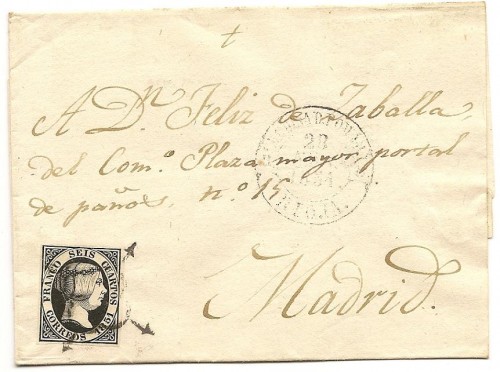 A Dn Feliz de Zaballa
del Com.o Plaza mayor, portal
de paños, n.o 15
Madrid.
28
1851
RIOJA.
FRANCO SEIS CUARTOS
CORREOS 1851